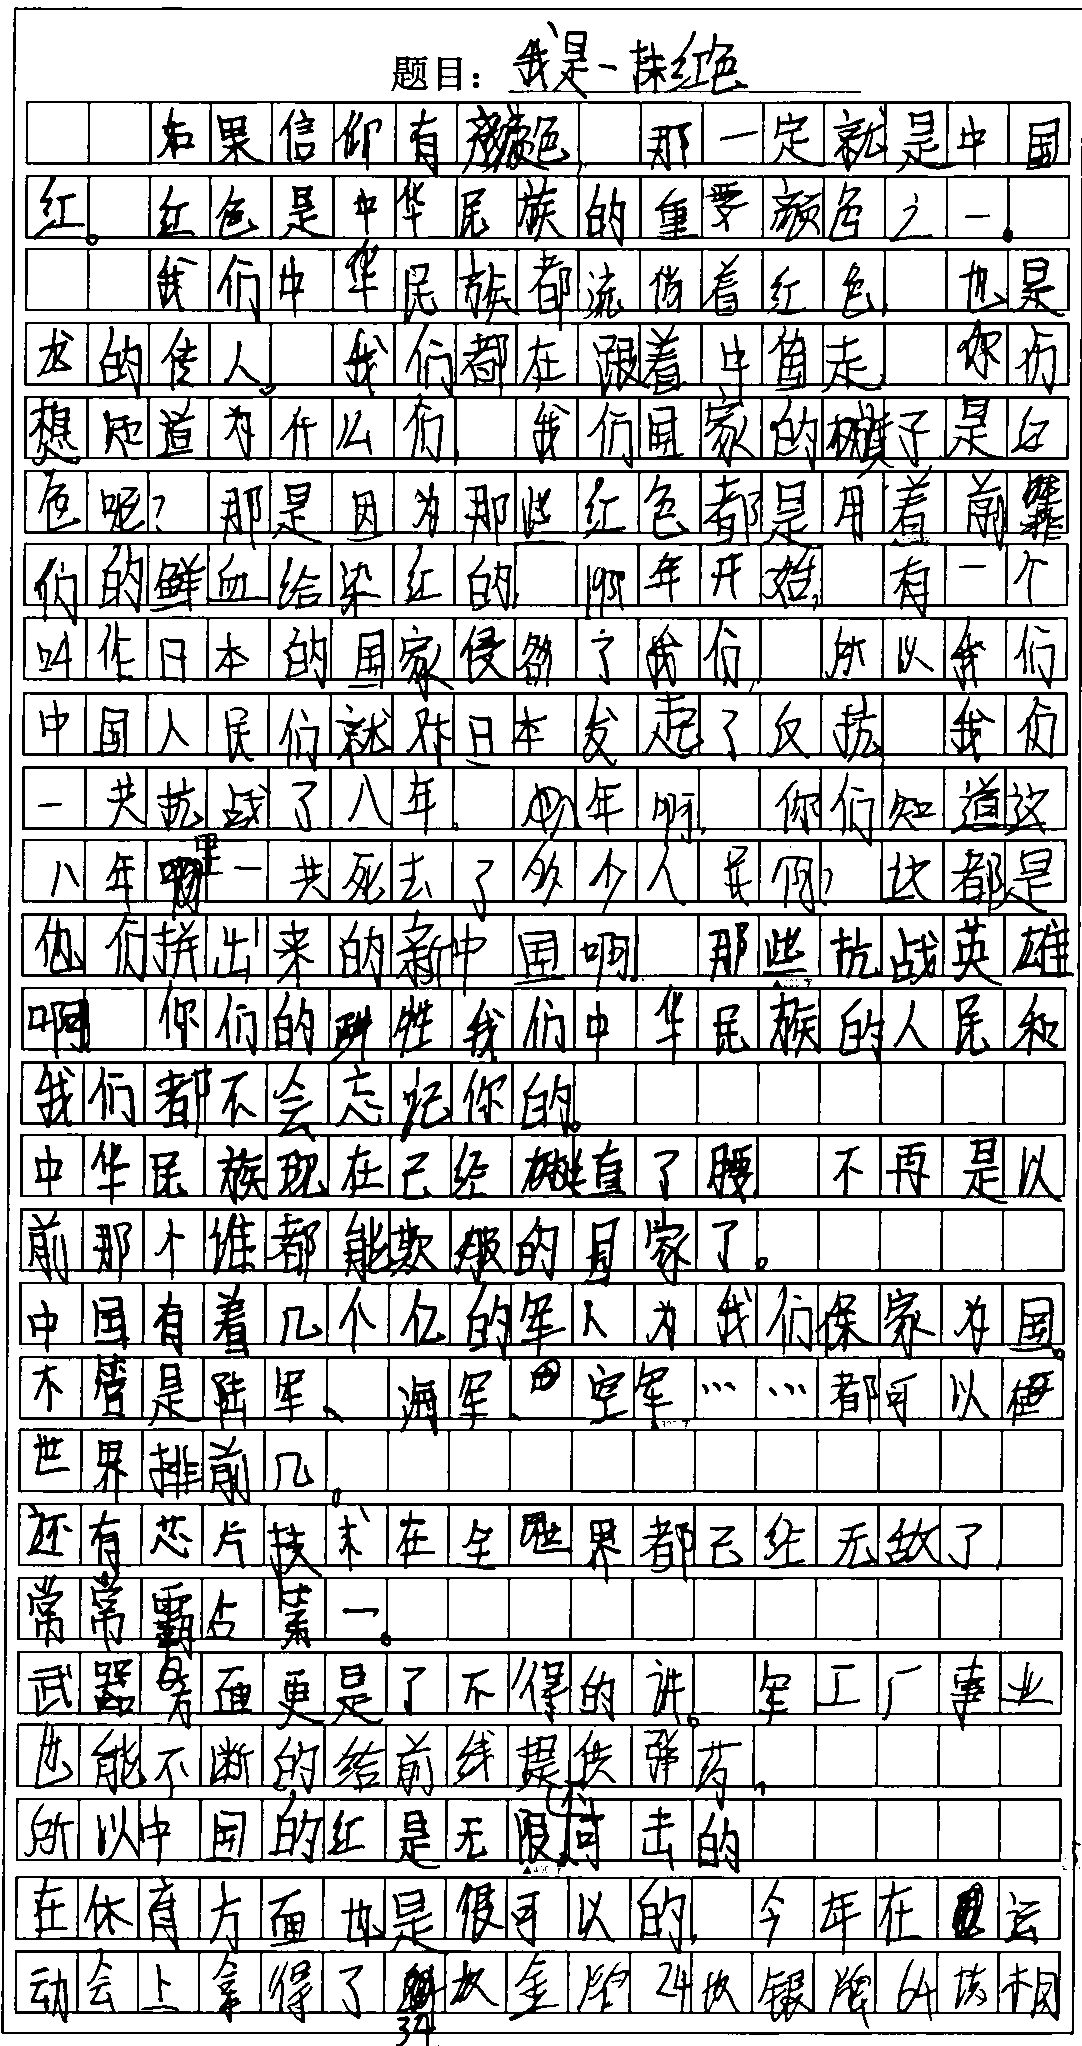 题目：我是一抹红色
如果信仰有颜色，那一定就是中国
红。红色是中华民族的重要颜色之一。
我们中华民族都流淌着红色，也是
龙的传人。我们都在跟着中国走，你们
想知道为什么们，我们国家的旗子是红
色呢？那是因为那些红色都是用着前辈
们的鲜血给染红的，1931年开始，有一个
叫作日本的国家侵略了我们，所以我们
中国人民们就对日本发起了反抗，我们
一共抗战了八年，八年啊，你们知道这
八年里一共死去了多少人民吗？这都是
他们拼出来的新中国啊，那些抗战英雄
啊，你们的牺牲我们中华民族的人民和
我们都不会忘记你的。
中华民族现在已经挺直了腰，不再是以
前那个谁都能欺服的国家了。
中国有着几个亿的军人为我们保家为国。
不管是陆军、海军、空军……都可以在
世界排前几。
还有芯片技术在全世界都已经无敌了，
常常霸占第一。
武器方面更是了不得的讲。军工厂事业
也能不断的给前线提供弹药，
所以中国的红是无限可击的
在体育方面也是很可以的，今年在奥运
动会上拿得了34枚金牌24枚银牌64块铜